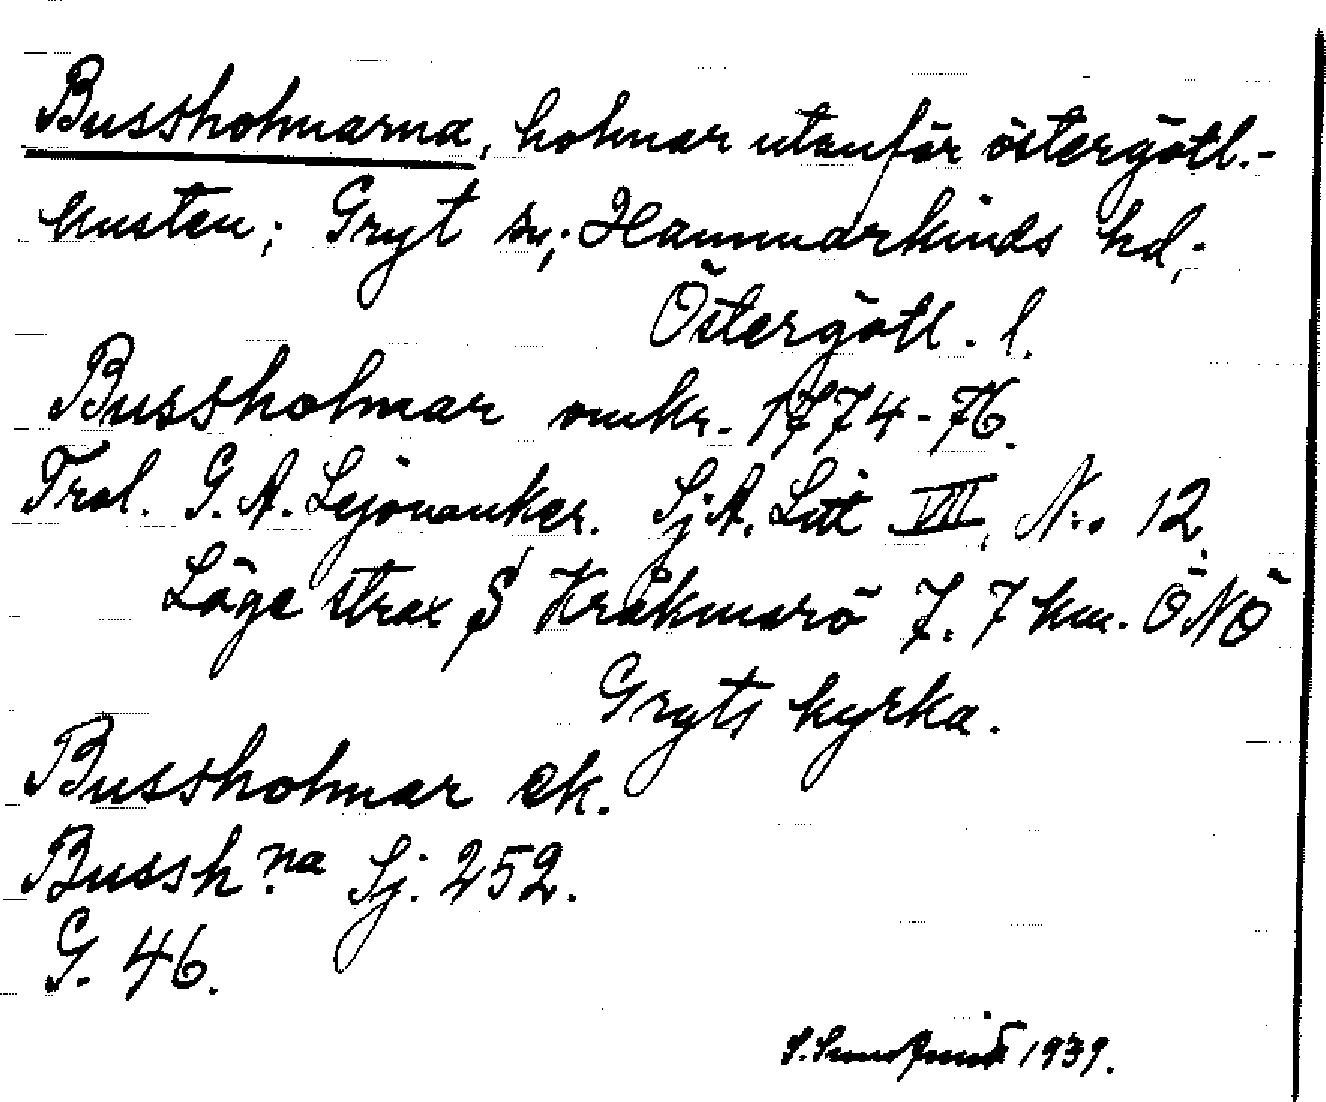 Bussholmarna, holmar utanför östergötl.-
kusten; Gryt sn; Hammarkinds hd;
Östergötl. l.
Bussholmar omkr. 1774-76.
Trol. G. A. Lejonanker. SjA. Litt VII, N:o 12.
Läge strax S Kråkmarö 7.7 km. ÖNÖ
Gryts kyrka.
Bussholmar ek.
Bussh.na Sj. 252.
G. 46.
1939.